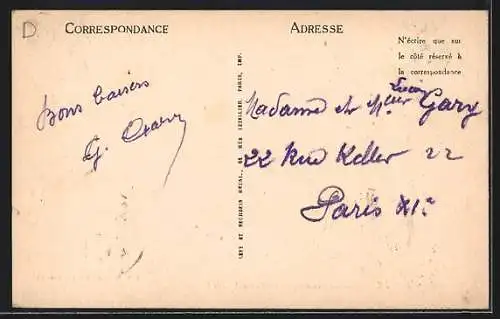 D
CORRESPONDANCE
ADRESSE
N'écrire que sur
le côté réservé à
la correspondance
Bons baisers
G.
LEVY ET NEURDEIN RÉUNIS, 44 RUE LETELLIER, PARIS, IMP.
Madame & Mlle Gary
22 Rue Keller 22
Paris XIe